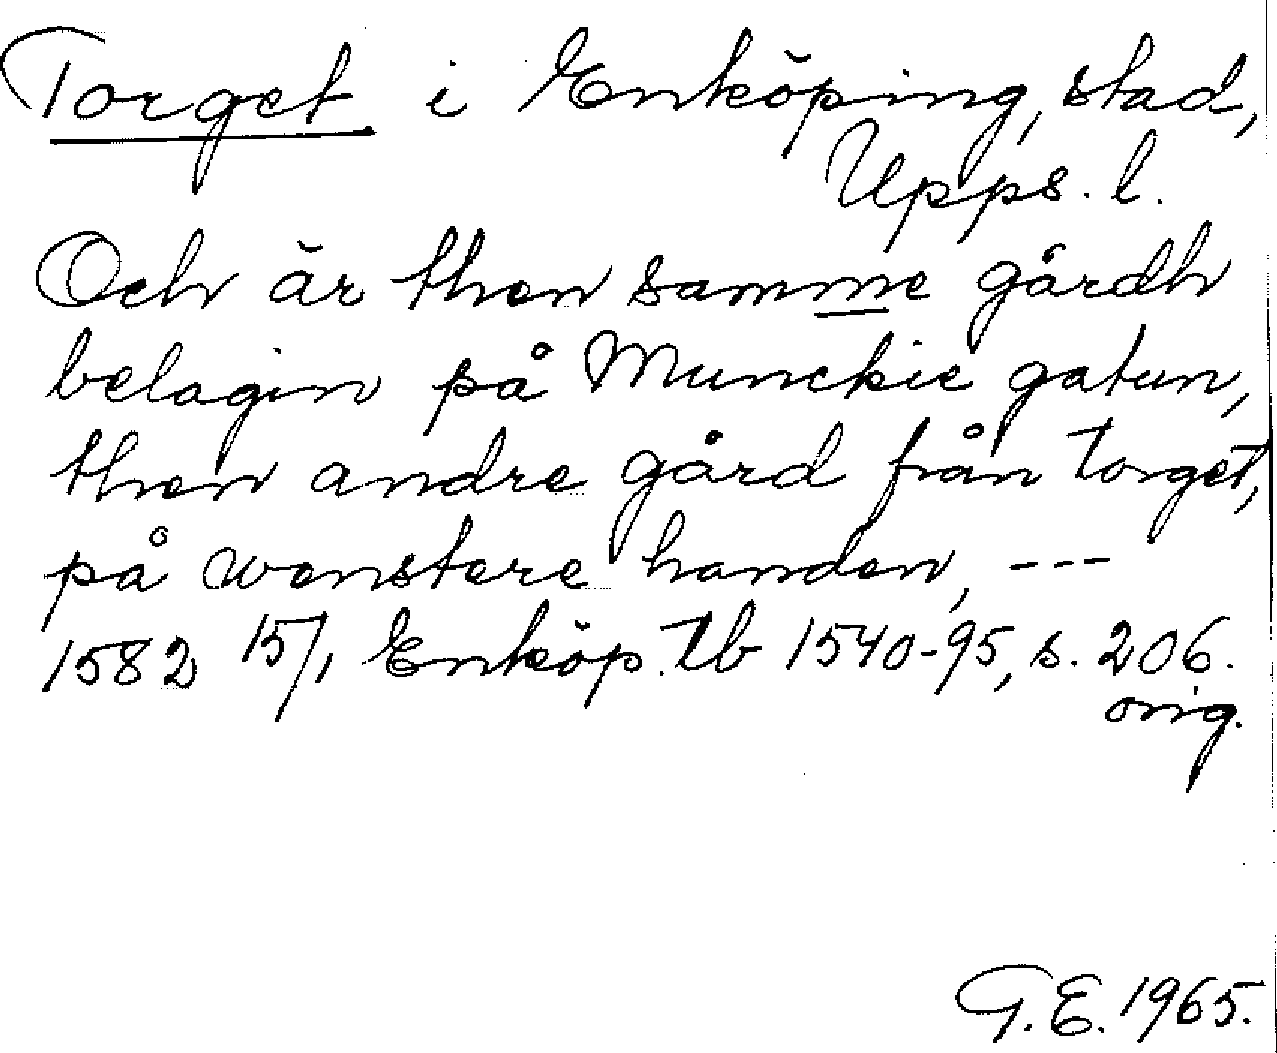 Torget i Enköping, stad,
Upps. l.
Och är then samme gårdh
belagin på Munckie gatun,
then andre gård från torget,
på wenstere handen, ---
1582 15/1 Enköp. tb 1540-95, s. 206.
orig.
G.E. 1965.